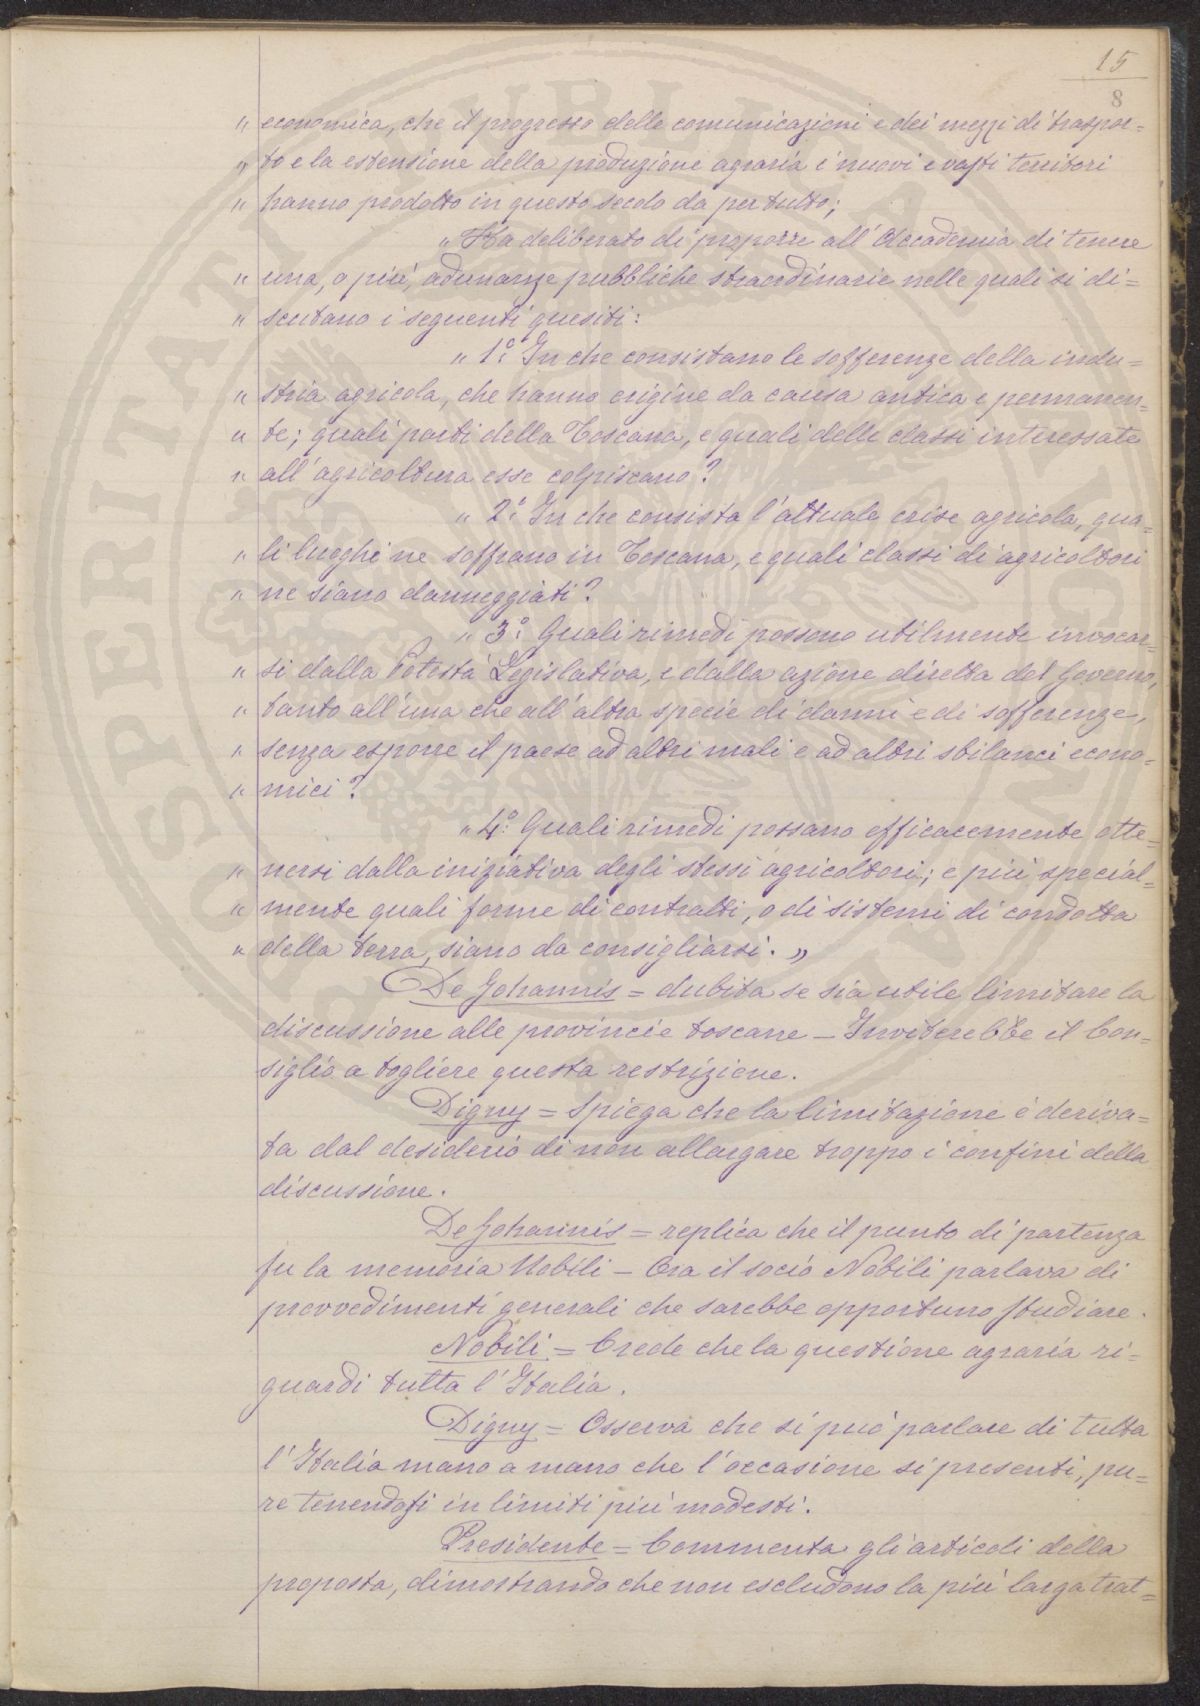 15
8
" economica, che il progresso delle comunicazioni e dei mezzi di traspor=
" to e la estensione della produzione agraria i nuovi e vasti territori
" hanno prodotto in questo secolo da per tutto;
" Ha deliberato di proporre all'Accademia di tenere
" una, o più, adunanze pubbliche straordinarie nelle quali si di=
" scutano i seguenti quesiti:
" 1.° In che consistano le sofferenze della indu=
" stria agricola, che hanno origine da causa antica e permanen=
" te; quali parti della Toscana, e quali delle classi interessate
" all'agricoltura esse colpiscano?
" 2.° In che consista l'attuale crise agricola, qua=
" li luoghi ne soffrano in Toscana, e quali classi di agricoltori
" ne siano danneggiati?
" 3.° Quali rimedi possono utilmente invocar=
" si dalla Potestà Legislativa, e dalla azione diretta del Governo,
" tanto all'una che all'altra specie di danni e di sofferenze,
" senza esporre il paese ad altri mali e ad altri sbilanci econo=
" mici?
" 4.° Quali rimedi possano efficacemente otte=
" nersi dalla iniziativa degli stessi agricoltori; e più special=
" mente quali forme di contratti, o di sistemi di condotta
" della terra, siano da consigliarsi. "
De Johannis = dubita se sia utile limitare la
discussione alle provincie toscane – Inviterebbe il Con=
siglio a togliere questa restrizione.
Digny = Spiega che la limitazione è deriva=
ta dal desiderio di non allargare troppo i confini della
discussione.
De Johannis = replica che il punto di partenza
fu la memoria Nobili – Ora il socio Nobili parlava di
provvedimenti generali che sarebbe opportuno studiare.
Nobili = Crede che la questione agraria ri=
guardi tutta l'Italia.
Digny = Osserva che si può parlare di tutta
l'Italia mano a mano che l'occasione si presenti, pu=
re tenendosi in limiti più modesti.
Presidente = Commenta gli articoli della
proposta, dimostrando che non escludono la più larga trat=